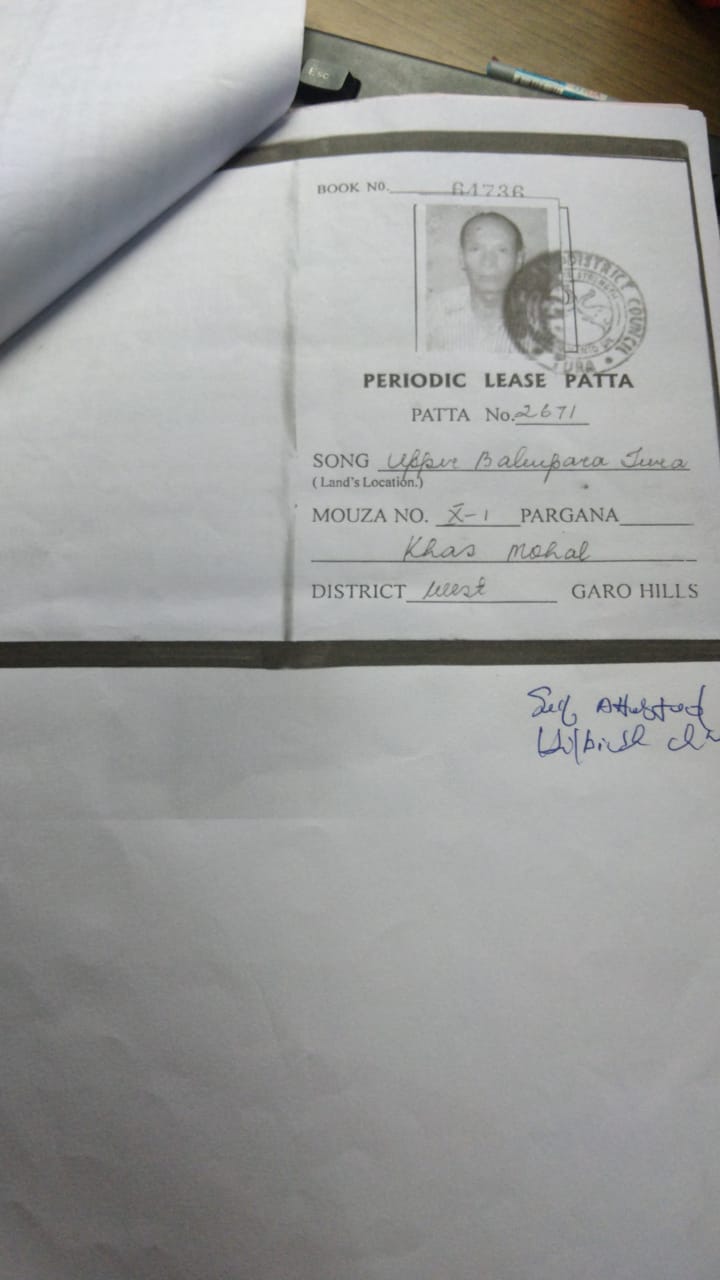 Esc
BOOK NO. 64736
DISTRICT COUNCIL
TURA
PERIODIC LEASE PATTA
PATTA No. 2671
SONG Upper Babupara Tura
(Land's Location.)
MOUZA NO. X-1 PARGANA
Khas Mohal
DISTRICT West GARO HILLS
Self Attested